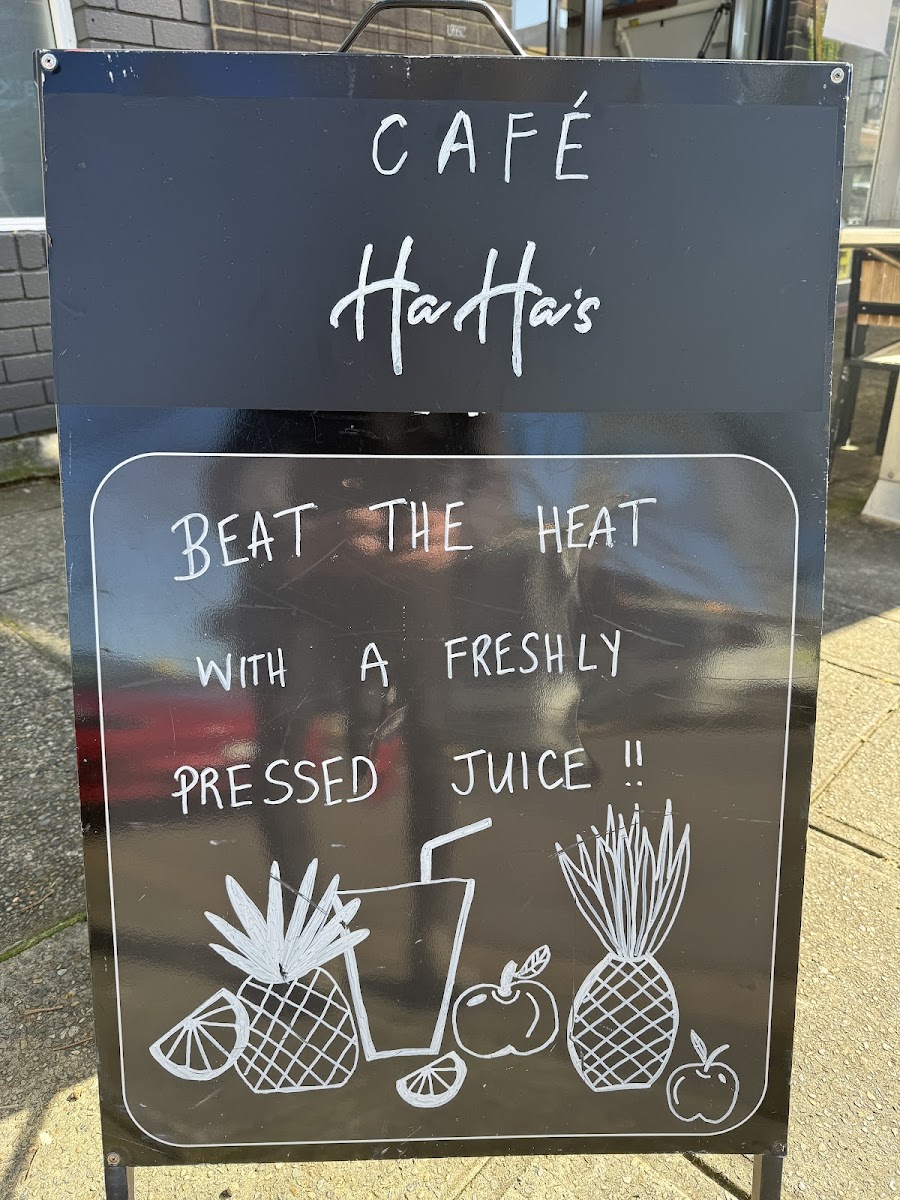 CAFÉ
HaHa's
BEAT THE HEAT
WITH A FRESHLY
PRESSED JUICE !!